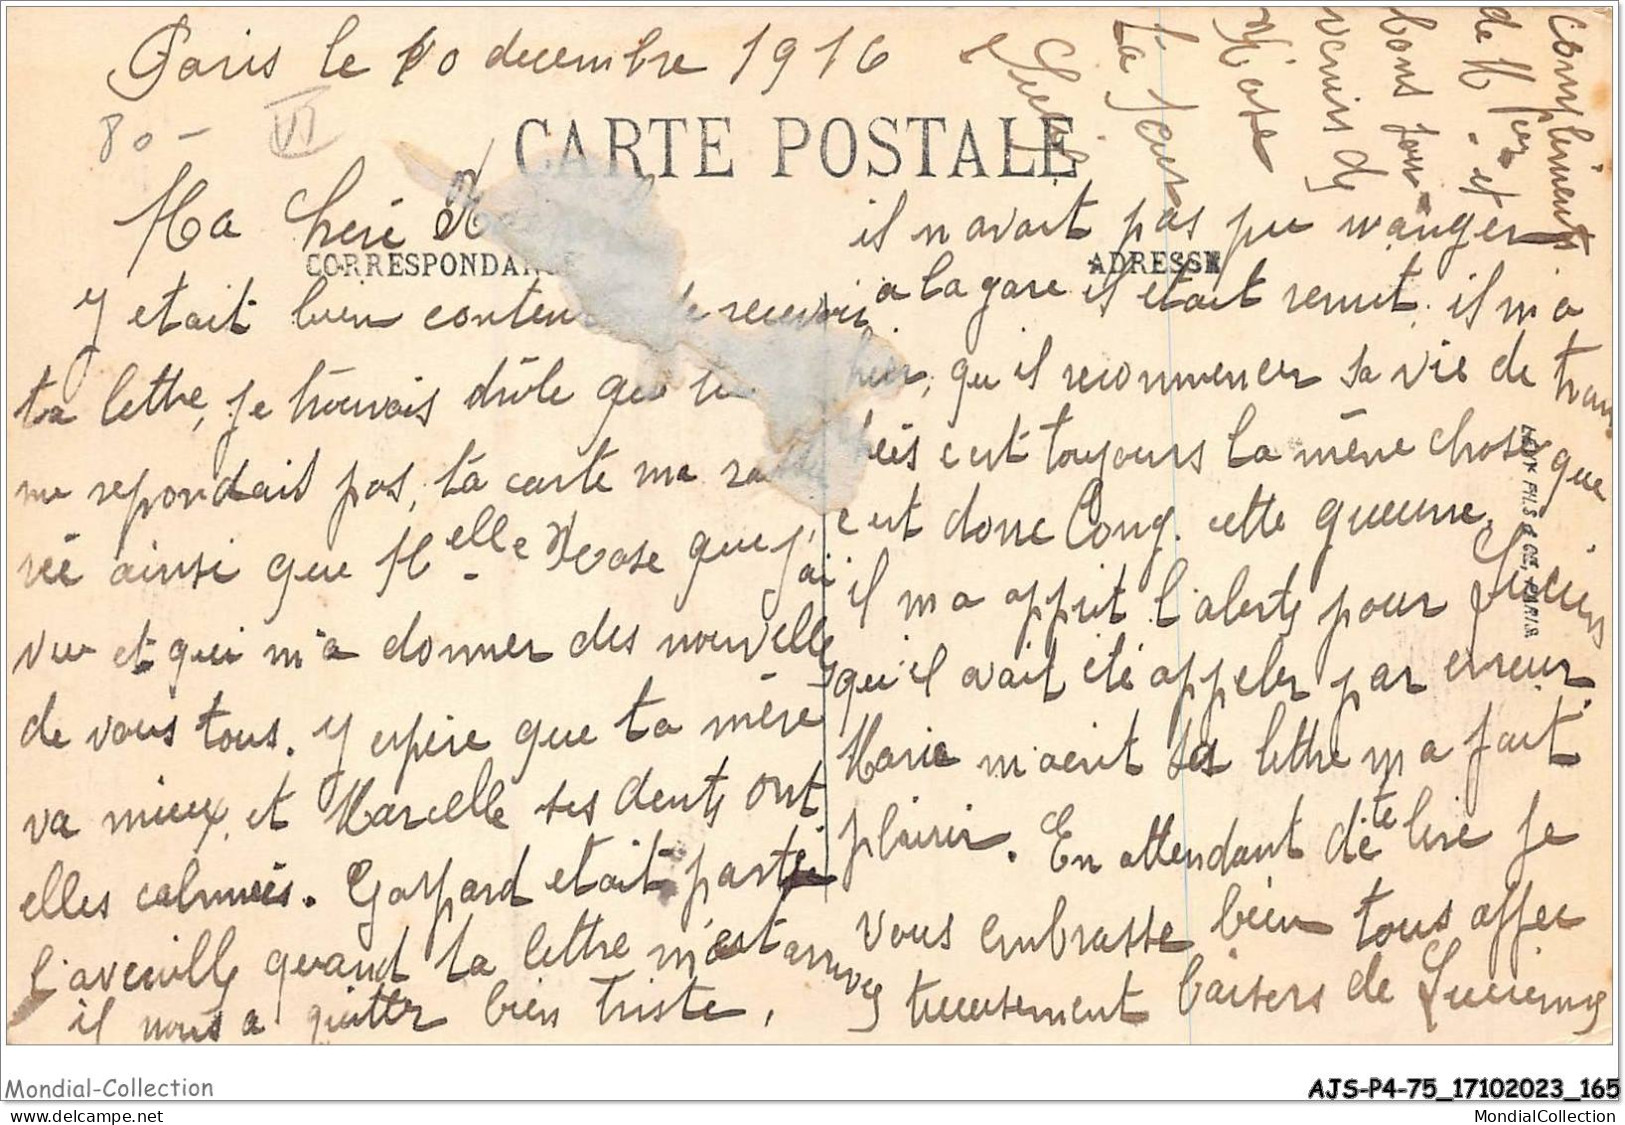 Paris le 10 decembre 1916
80 - VI
CARTE POSTALE
CORRESPONDANCE
ADRESSE
Ma cheré
Y etait bien content de recevoir
ta lettre, je trouvais drôle que tu
me repondais pas, ta carte ma
rée ainsi que Melle Rose que j'ai
vue et qui m'a donner des nouvelle
de vous tous. Y espere que ta mère
va mieux et Marcelle ses dents ont
elles calmées. Gaspard etait parti
l'aveuille quand ta lettre m'est arrivés
il nous a quitter bien triste,
il n avait pas pu manger
a la gare il etait remit, il m a
hier, qu il recommencer sa vie de tran
chéis c est toujours la même chose que
c est donc long cette guerre,
il m a apprit l'alerte pour Lucien
qu'il avait été appeler par erreur.
Marie m'acrit sa lettre m a fait
plaisir. En attendant de te lire je
vous embrasse bien tous affec
tueusement baisers de Lucienne
Compliments
de M. Pier. et
bons jour
venis de
Rose
La Jour
LÉVY FILS & CIE, PARIS.
Mondial-Collection
AJS-P4-75_17102023_165
www.delcampe.net
MondialCollection